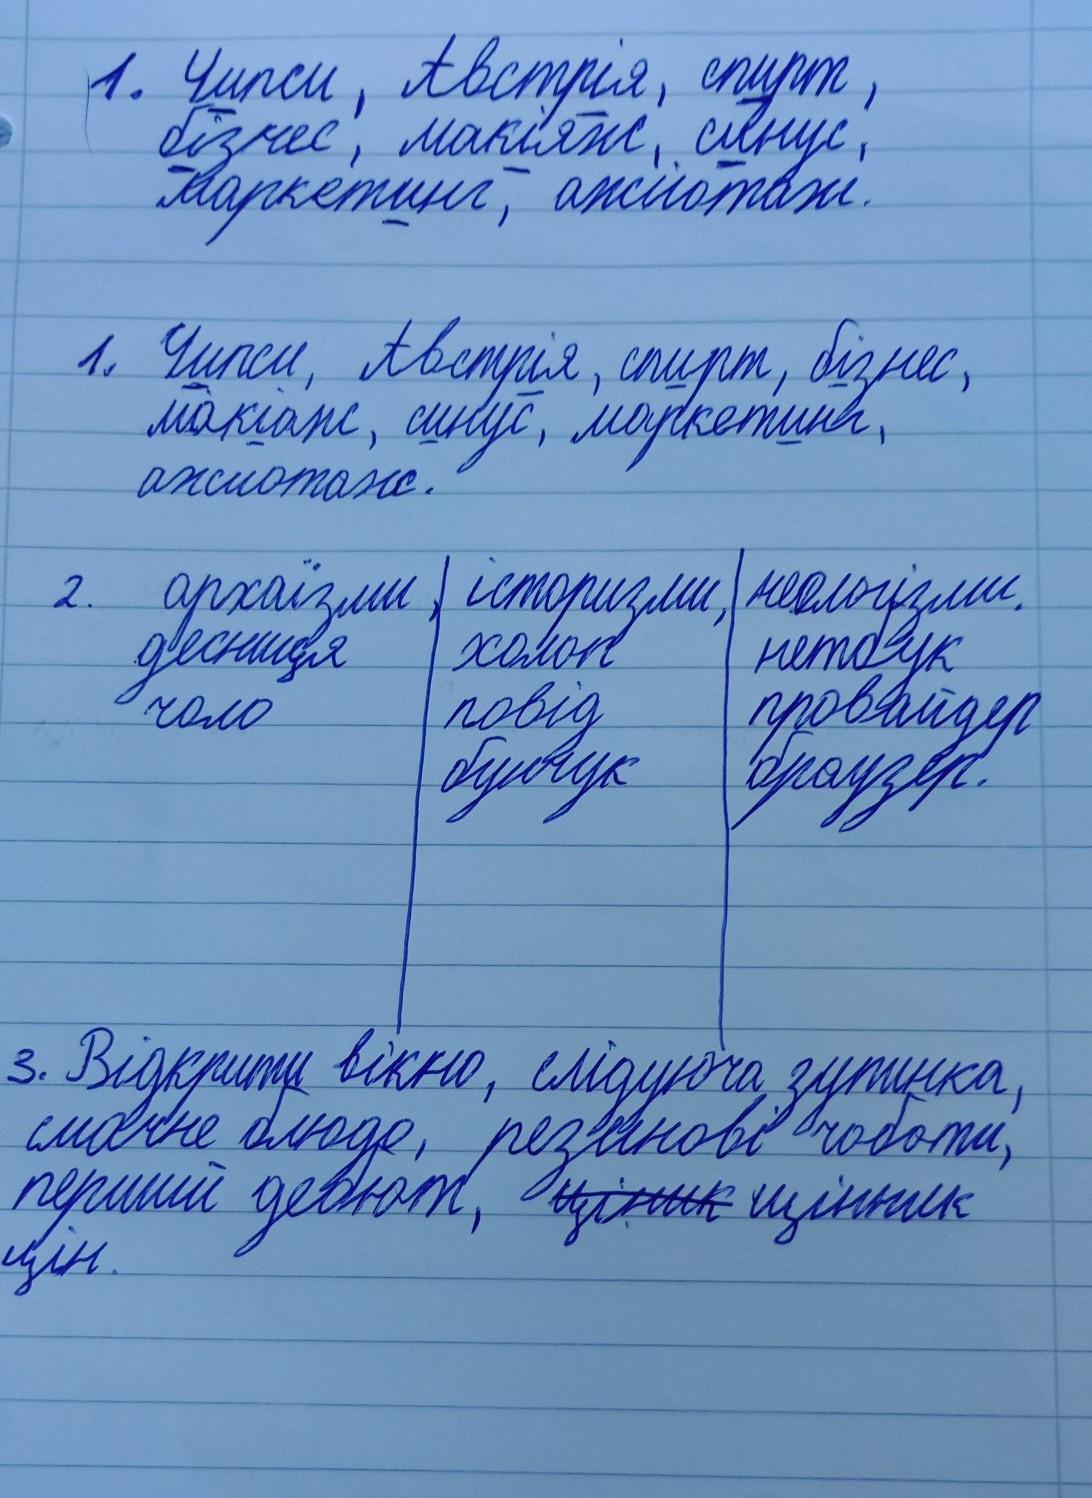 1. Чипси, Австрія, спирт,
бізнес, макіяж, синус,
маркетинг, ажіотаж.
1. Чипси, Австрія, спирт, бізнес,
макіяж, синус, маркетинг,
ажиотаж.
2. архаїзми, історизми, неологізми.
десниця холоп нетбук
чоло повід провайдер
бунчук браузер.
3. Відкрити вікно, слідуюча зупинка,
смачне блюдо, резинові чоботи,
перший дебют, цінник
цін.